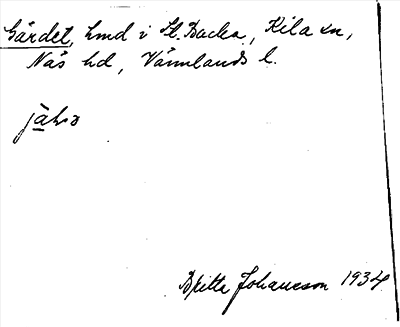 Gärdet, hmd i St. Backa, Kila sn,
Näs hd, Värmlands l.
Britta Johansson 1934